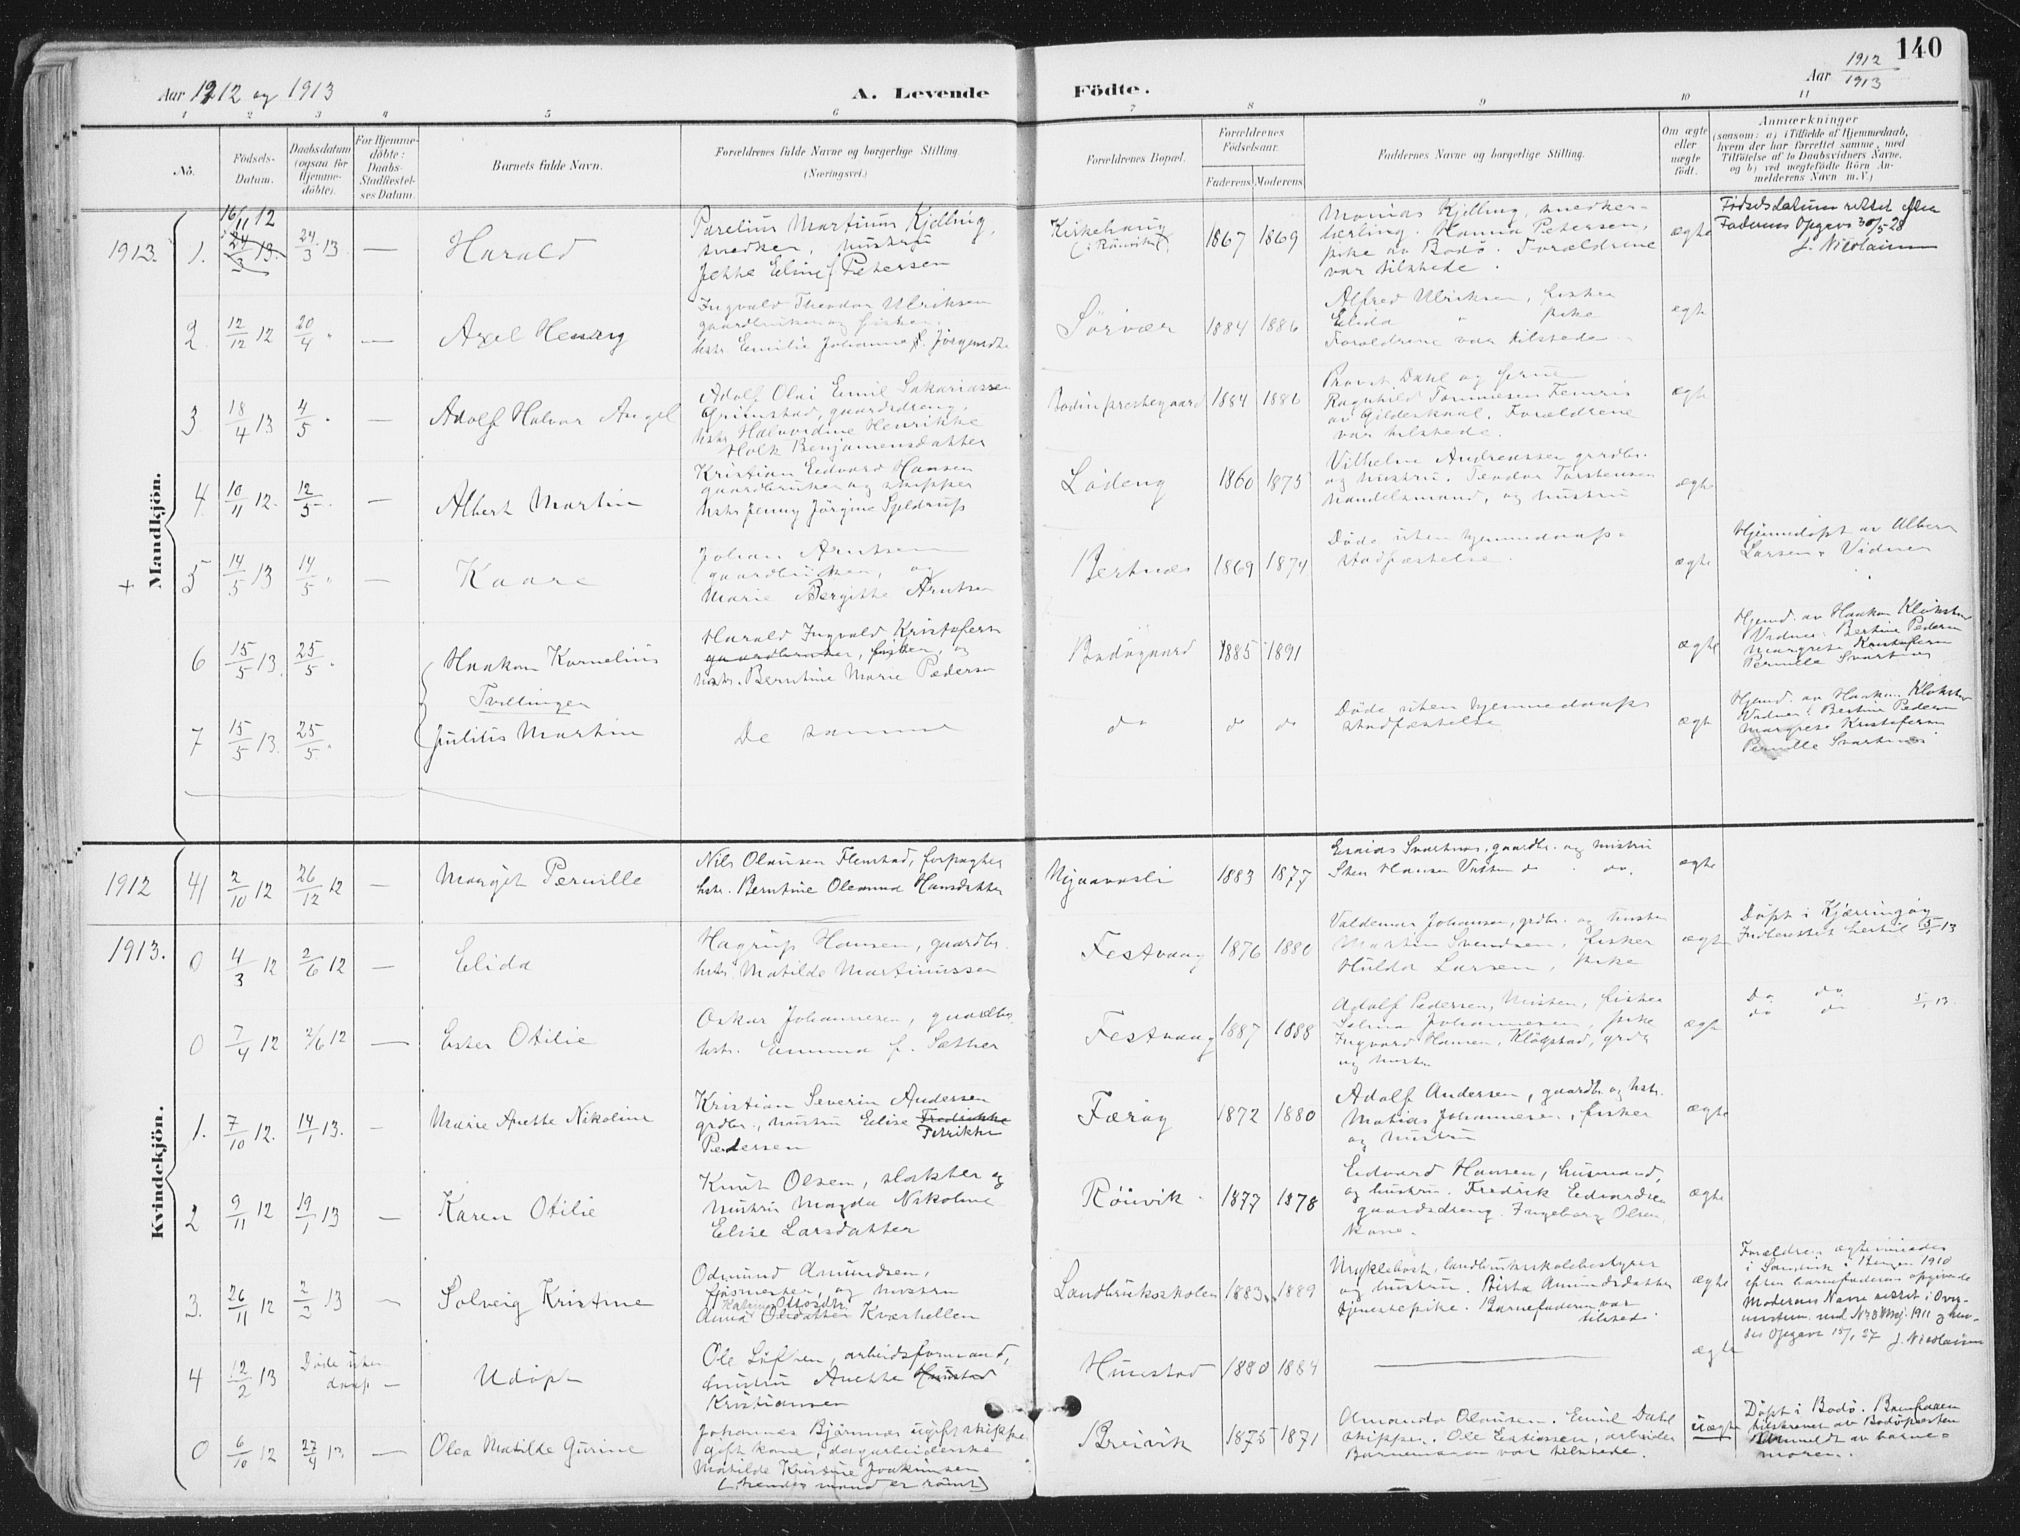 140
Aar 1912 og 1913
A. Levende
Födte.
Aar 1912
1913
1 2 3 4 5 6 7 8 9 10 11
No.
Födsels-
Datum.
Daabsdatum
(ogsaa for
Hjemme-
döbte).
For Hjemme-
döbte:
Daabs-
Stadfæstel-
ses Datum.
Barnets fulde Navn.
Forældrenes fulde Navne og borgerlige Stilling
(Næringsvei.)
Forældrenes Bopæl.
Forældrenes
Födselsaar.
Faderens Moderens
Faddernes Navne og borgerlige Stilling.
Om ægte
eller
uægte
födt.
Anmærkninger
(saasom: a) i Tilfælde af Hjemmedaab,
hvem der har forrettet samme, med
Tilföielse af to Daabsvidners Navne,
og b) ved uægtefödte Börn An-
melderens Navn m. V.)
Mandkjön.
1913. 1. 16/11 12 24/3 13. 24/3 13 — Harald
Parelius Martinus Kjelling,
snedker, hustru
Jekke Eline f. Petersen
Kirkehaug
(i Rönvik)
1867 1869
Monrad Kjelling, snedker-
lærling. Hanna Petersen,
pike av Bodö. Forældrene
var tilstede.
ægte
Födselsdatum rettet efter
Faderens Opgave 30/5 28
J. Nicolaissen
2. 12/12 12 20/4 " — Axel Henry
Ingvald Theodor Ulriksen
gaardbruker og fisker,
hstr. Emilie Johanna f. Jörgensdtr
Sörvær 1884 1886
Alfred Ulriksen, fisker
Elida " pike
Forældrene var tilstede.
ægte
3. 18/4 13 4/5 " — Adolf Halvor Angel
Adolf Olai Emil Sakariassen
Grimstad, gaardsdreng,
hstr. Halvardine Henrikke
Holk Benjaminsdatter
Bodin prestegaard 1884 1886
Provst Dahl og frue
Ragnhild Tommesen Femris
av Gildeskaal. Forældrene
var tilstede.
ægte
4. 10/11 12. 12/5 — Albert Martin
Kristian Edvard Hansen
gaardbruker og skipper
hstr Jenny Jörgine Sjeldrup
Löding 1860 1875
Vilhelm Andreassen grdbr.
og hustru. Teodor Torstensen
handelsmand, og hustru
ægte
+ 5 14/5 13 14/5 " — Kaare
Johan Arntsen
gaardbruker, og
Marie Bergitte Arntsen
Bertnes 1869 1874
Döde uten hjemmedaaps-
stadfæstelse.
ægte
Hjemmedöpt av Albert
Larsen. Vidner
6 15/5 13. 25/5 " Haakon Kornelius
Tvillinger
Harald Ingvald Kristofersen
gaardbruker, fisker, og
hstr. Berntine Marie Pedersen
Bodögaard 1885 1891
ægte
Hjemd. av Haakon Klokster
Vidner: Bertine Pedersen
Margrete Kristofersen
Pernille Svartnes
7 15/5 13. 25/5 " Julius Martin
De samme
do do do
Döde uten hjemmedaaps
stadfæstelse
ægte
Hjemd. av Haakon Klokster
Vidner: Bertine Pedersen
Margrete Kristofersen
Pernille Svartnes
Kvindekjön.
1912 41 2/10 12 26/12 12 — Margit Pernille
Nils Olausen Flemstad, forpagter
hstr. Berntine Olemine Hansdatter
Nyaavasli 1883 1877
Esaias Svartnes, gaardbr. og hustru
Sten Hansen Vatten do do.
ægte
1913. 0 4/3 12 2/6 12 — Elida
Hagrup Hansen, gaardbr.
hstr. Matilde Martinussen
Festvaag 1876 1880
Valdemar Johansen, grdbr. og hustru
Martin Svendsen, fisker
Hulda Larsen, pike
ægte
Döpt i Kjærringöy
Indberettet hertil 5/1 13
0 7/4 12 2/6 12 — Ester Otilie
Oskar Johannesen, gaardbr.
hstr. Emma f. Sæther
Festvaag 1887 1888
Adolf Pedersen, Misten, fisker
Selma Johannesen, pike
Ingvard Hansen, Klögstad, grdbr
og hustru
ægte
Do do
do do 5/1 13.
1. 7/10 12. 14/1 13. — Marie Anette Nikoline
Kristian Severin Andersen
grdbr., hustru Elise Fredrikke
Petrikke
Pedersen
Færöy 1872 1880
Adolf Andersen, gaardbr og hstr.
Matias Johannesen, fisker
og hustru
ægte
2 9/11 12 19/1 13 — Karen Otilie
Knut Olsen, slakter og
hustru Magda Nikoline
Elise Larsdatter
Rönvik 1877 1878
Edvard Hansen, husmand,
og hustru. Fredrik Edvardsen
gaardsdreng. Ingeborg Olsen,
kone.
ægte
3. 26/11 12 2/2 13 — Solveig Kristine
Odmund Amundsen,
fjösmester, og hustru
Katrine Ottosdtr.
Anna Olsdatter Kværhellen
Landbruksskolen 1883. 1889
Myklebost, landbruksskolebestyrer
og hustru. Berta Amundsdatter
tjenestepike. Barnefaderen var
tilstede.
ægte
Forældrene ægteviedes
i Sandvik i Bergen 1910
efter barnefaderens opgivende
Moderens Navn rettet i Over-
ensstem. med No 8 Maj. 1911 og hen-
des Opgave 15/1 27 J. Nicolaissen
4 12/2 13 Döde uten
daap — Udöpt
Ole Löften, arbeidsformand,
hustru Anette Hunstad
Kristiansen
Hunstad 1880 1884 —
ægte
0 6/10 12 27/4 13. — Olea Matilde Gurine
Johannes Björnnes ugift skipper
gift kone, dagarbeiderske
Matilde Kristine Joakimsen
[hendes mand er römt]
Breivik 1875 1871
Amanda Olausen. Emil Dahl
skipper. Ole Estiassen, arbeider
Barnemoren var tilstede.
uægte
Döpt i Bodö. Barnfaren
tilskrevet av Bodöpresten
Anmeldt av barne-
moren.